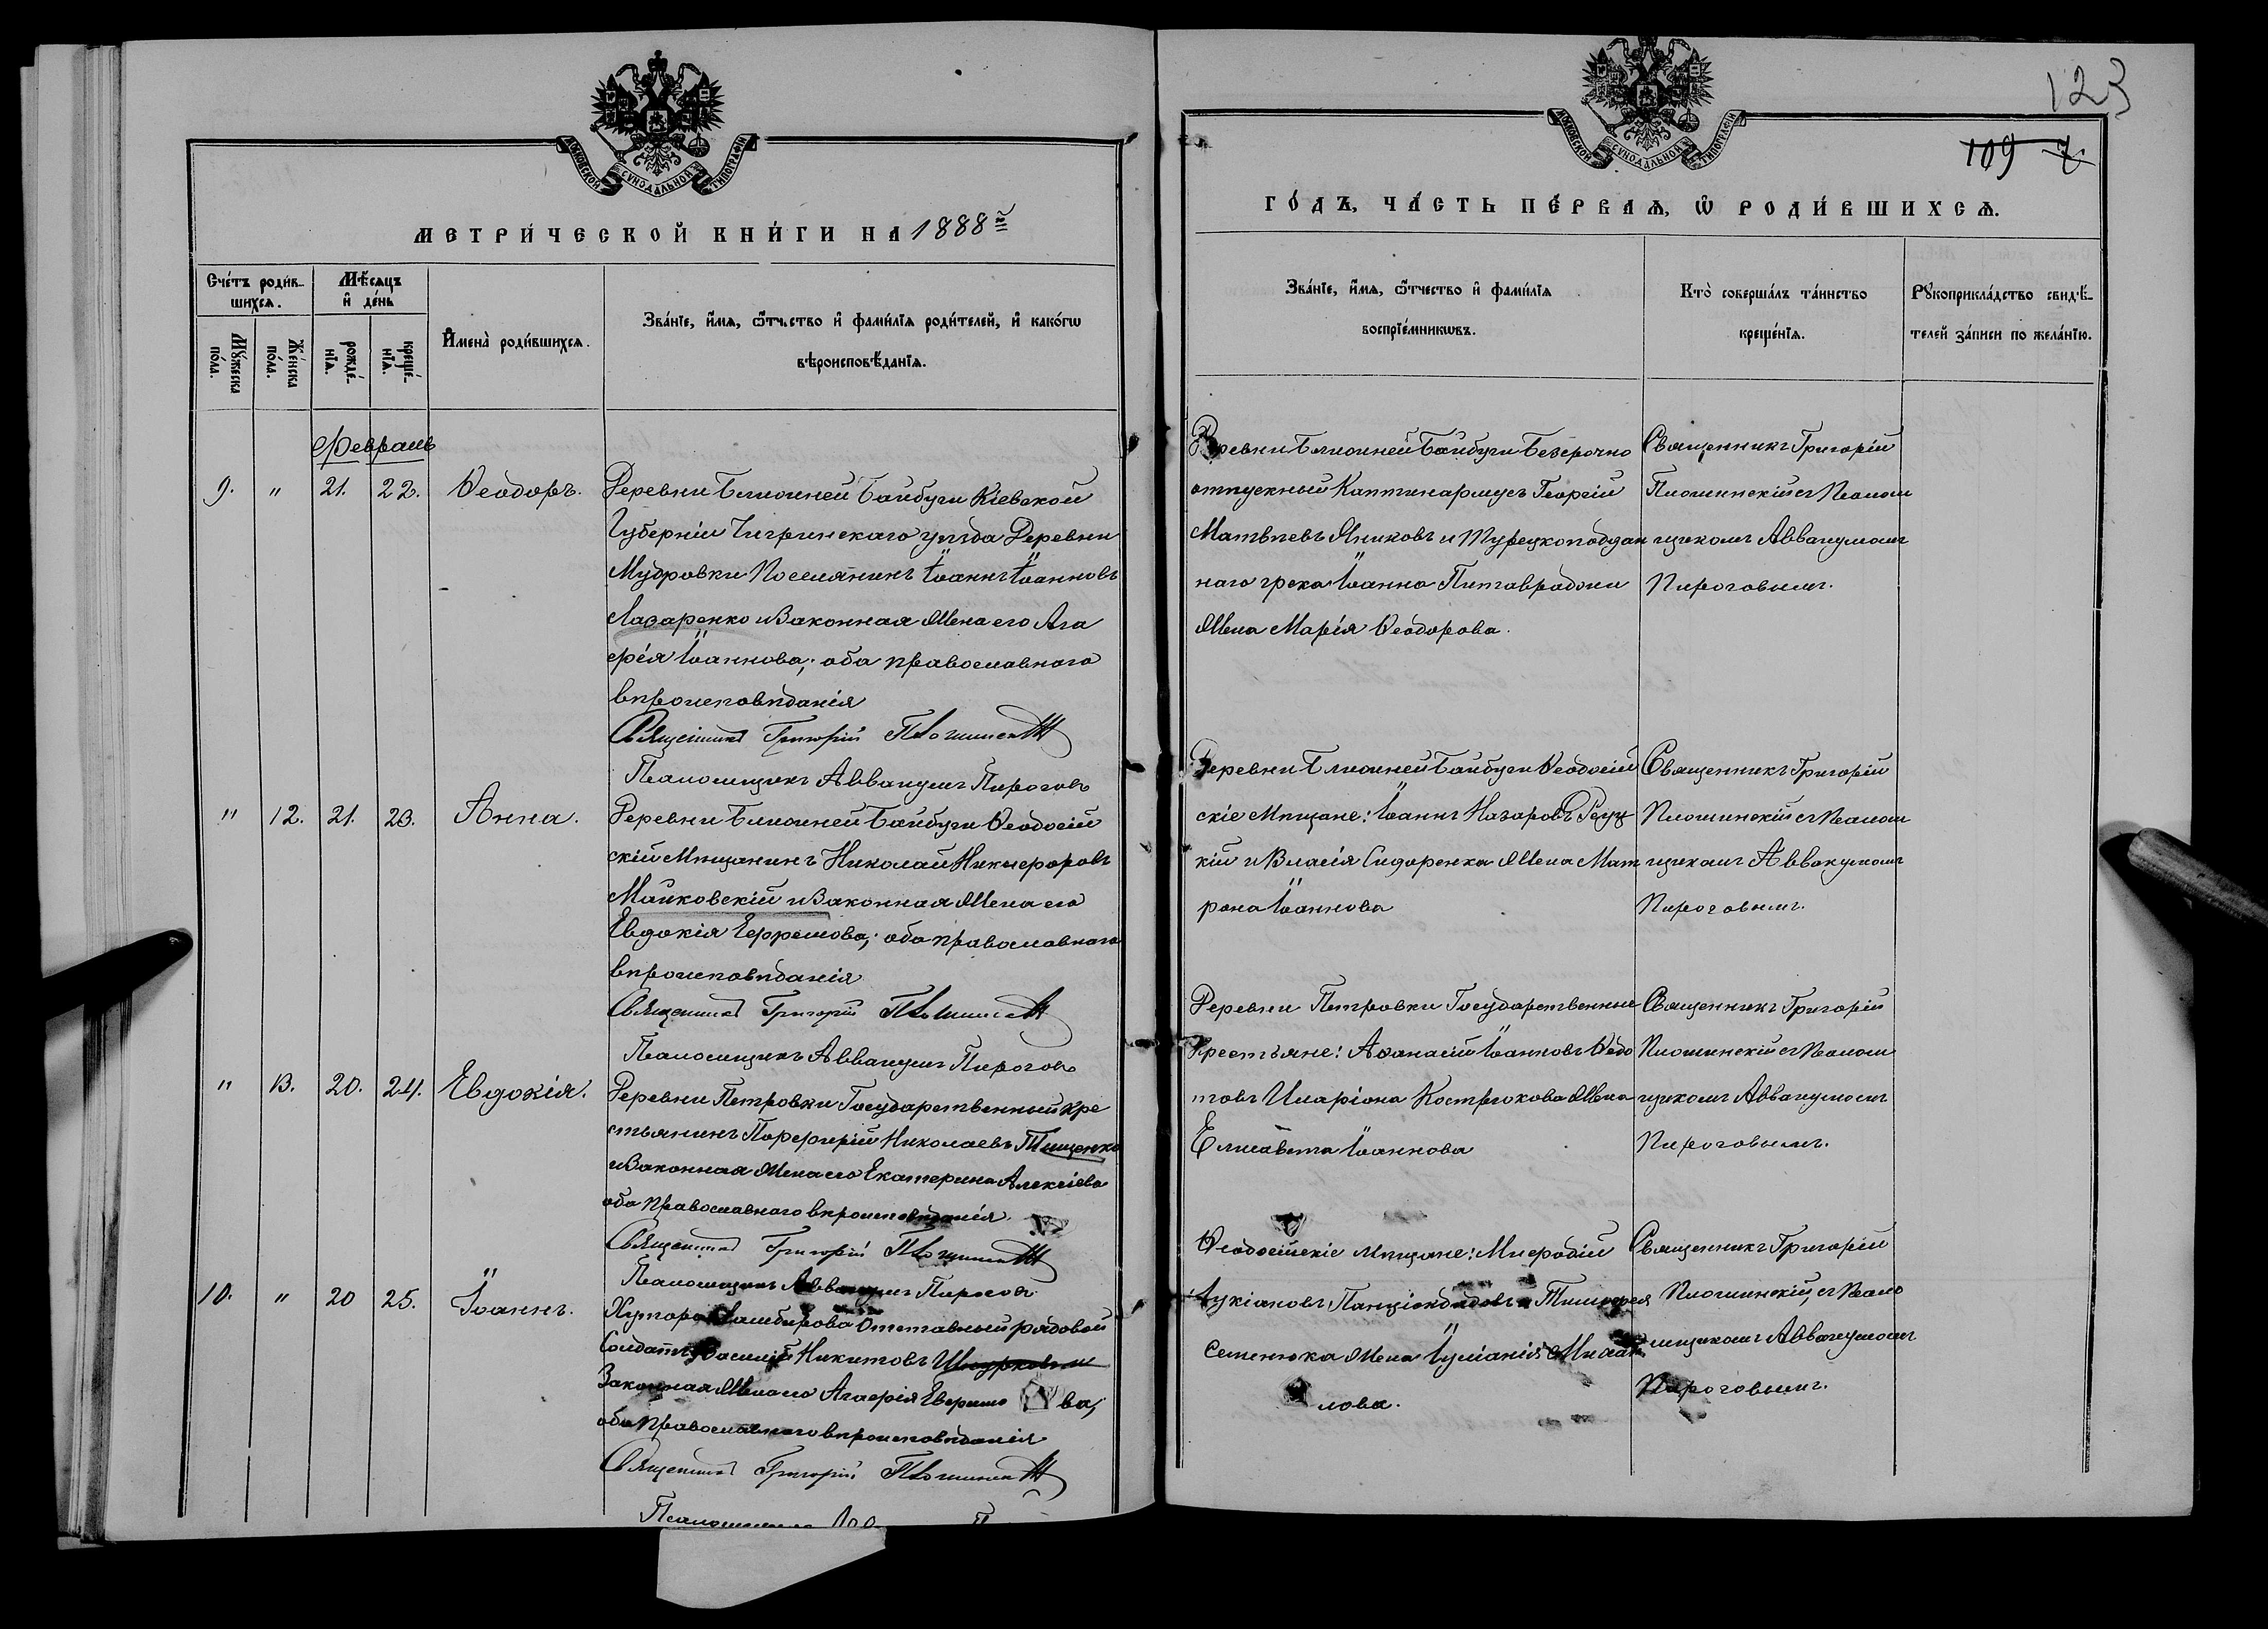 МОСКОВСКОЙ СѴНОДАЛЬНОЙ ТИПОГРАФІИ
МЕТРИ́ЧЕСКОЙ КНИ́ГИ НА 1888й
Сче́тъ роди́в-
шихся.
Мѣ́сяцъ
и҆ де́нь
Мꙋ́жеска
по́ла.
Же́нска
по́ла.
рожде́-
нїѧ.
креще́-
нїѧ.
И҆мена̀ роди́вшихсѧ.
Зва́нїе, и҆́мѧ, ѻ҆́тчество и҆ фами́лїѧ роди́телей, и҆ како́гѡ
вѣроисповѣ́данїѧ.
Февраль
9. " 21. 22. Ѳеодоръ.
Деревни Ближней Байбуги Кіевской
Губерніи Чигринскаго уѣзда Деревни
Мудровки Поселянинъ Іоаннъ Іоанновъ
Лазаренко и Законная Жена его Ага
ѳія Іоаннова; оба православнаго
вѣроисповѣданія
Священникъ Григорій
Псаломщикъ Аввакумъ Пироговъ
" 12. 21. 23. Анна.
Деревни Ближней Байбуги Ѳеодосій
скій Мѣщанинъ Николай Никифоровъ
Майковскій и Законная Жена его
Евдокія Ефремова; оба православнаго
вѣроисповѣданія
Священникъ Григорій
Псаломщикъ Аввакумъ Пироговъ
" 13. 20. 24. Евдокія.
Деревни Петровки Государственный кре
стьянинъ Порфирій Николаевъ Тищенко
и Законная Жена его Екатерина Алексіева
оба Православнаго вѣроисповѣданія.
Священникъ Григорій
Псаломщикъ Аввакумъ Пироговъ
10. " 20 25. Іоаннъ.
Хутора Отставный рядовой
Солдатъ Василій Никитовъ
Законная Жена его Агафія ва;
оба Православнаго вѣроисповѣданія
Священникъ Григорій
Псаломщикъ
123
109
МОСКОВСКОЙ СѴНОДАЛЬНОЙ ТИПОГРАФІИ
ГО́ДЪ, ЧА́СТЬ ПЕ́РВАѦ, Ѡ҆ РОДИ́ВШИХСѦ.
Зва́нїе, и҆́мѧ, ѻ҆́тчество и҆ фами́лїѧ
воспрїе́мникѡвъ.
Кто̀ соверша́лъ та́инство
креще́нїѧ.
Рꙋкоприкла́дство свидѣ́-
телей за́писи по жела́нїю.
Деревни Ближней Байбуги Безсрочно
отпускный Каптинармусъ Георгій
Матвѣевъ Яниковъ и Турецкоподдан
наго грека Іоанна
Жена Марія Ѳеодорова.
Священникъ Григорій
съ Псалом
щикомъ Аввакумомъ
Пироговымъ.
Деревни Ближней Байбуги Ѳеодосій
скіе Мѣщане: Іоаннъ Назаровъ Реуц
кій и Власія Сидоренка Жена Мат
рона Іоаннова
Священникъ Григорій
съ Псалом
щикомъ Аввакумомъ
Пироговымъ.
Деревни Петровки Государственные
Крестьяне: Аѳанасій Іоанновъ Ѳедо
товъ Иларіона Кострюкова Жена
Елисавета Іоаннова
Священникъ Григорій
съ Псалом
щикомъ Аввакумомъ
Пироговымъ.
Ѳеодосійскіе мѣщане: Меѳодій
Лукіановъ и Тимоѳея
Семенюка Жена Іуліанія Михаи
лова.
Священникъ Григорій
съ Псало
мщикомъ Аввакумомъ
Пироговымъ.